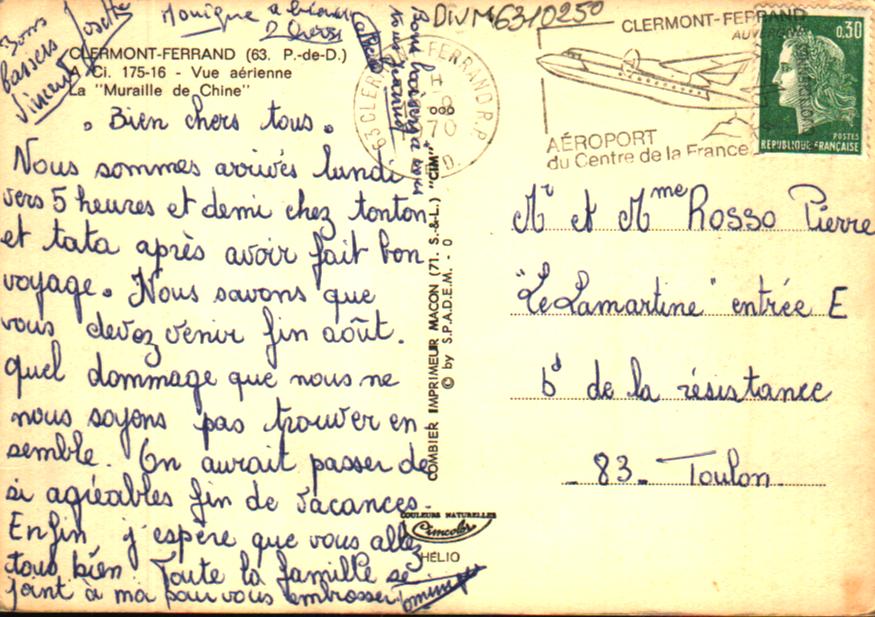 Bons
Baisers
Vincent Josette
Monique
DIVM6310250
CLERMONT-FERRAND (63. P.-de-D.)
Ci. 175-16 - Vue aérienne
La "Muraille de Chine"
Bien chers tous.
Nous sommes arrivés lundi
vers 5 heures et demi chez tonton
et tata après avoir fait bon
voyage. Nous savons que
vous devez venir fin août.
quel dommage que nous ne
nous soyons pas trouver en
semble. On aurait passer de
si agréables fin de vacances.
Enfin j'espère que vous allez
tous bien. Toute la famille se
joint à moi pour vous embrosser
COMBIER IMPRIMEUR MACON (71. S.-&-L.) "CIM"
© by S.P.A.D.E.M. - 0
COULEURS NATURELLES
Cimcolor
HÉLIO
63 CLERMONT-FERRAND R.P.
70
CLERMONT-FERRAND
AUVERGNE
AÉROPORT
du Centre de la France
0,30
POSTES
REPUBLIQUE FRANÇAISE
Mr et Mme ROSSO Pierre
"Le Lamartine" entrée E
bd de la résistance
83. Toulon